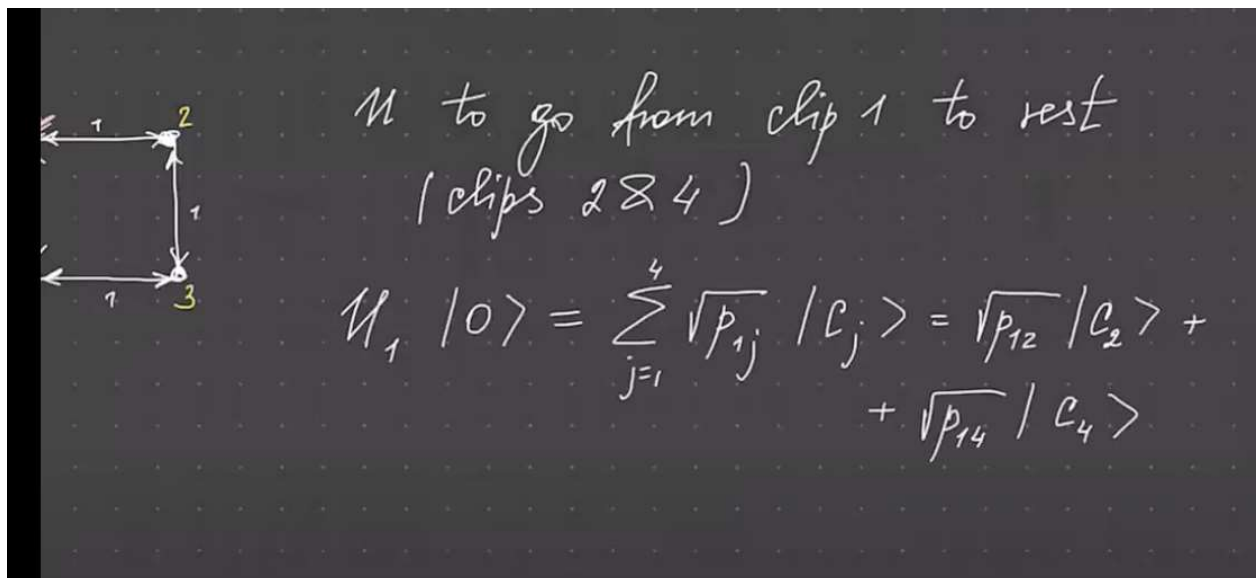 1
2
1
1
3
U to go from clip 1 to rest
(clips 2 & 4)
U₁ |0⟩ = ∑_{j=1}^{4} √p₁ⱼ |Cⱼ⟩ = √p₁₂ |C₂⟩ +
+ √p₁₄ |C₄⟩